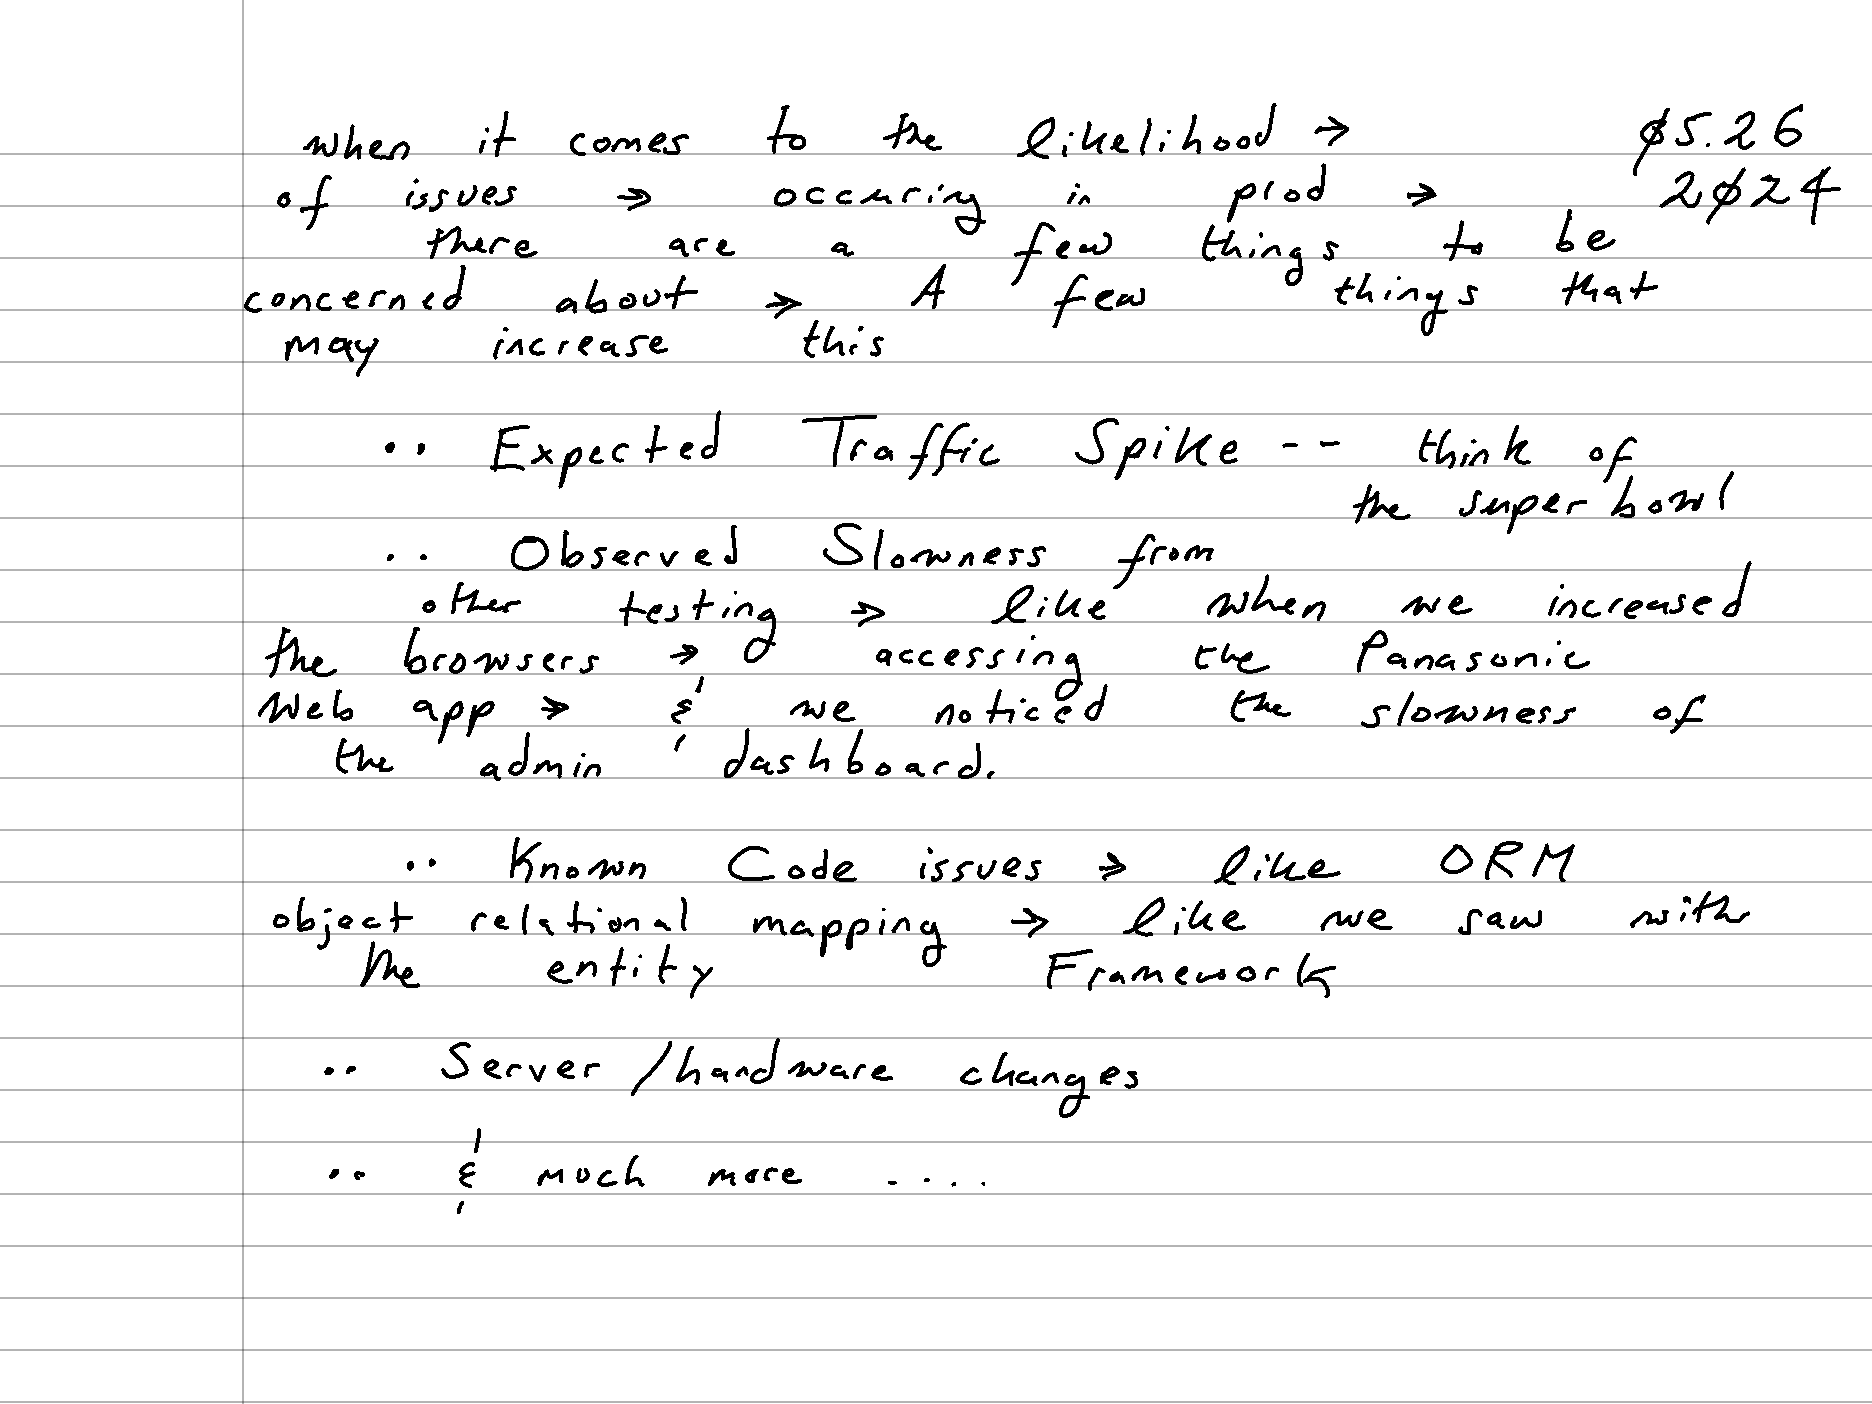 when it comes to the likelihood → ø5.26
of issues → occuring in prod → 2ø24
there are a few things to be
concerned about → A few things that
may increase this
.. Expected Traffic Spike -- think of
the super bowl
.. Observed Slowness from
other testing → like when we increased
the browsers → accessing the Panasonic
Web app → & we noticed the slowness of
the admin dashboard.
.. Known Code issues → like ORM
object relational mapping → like we saw with
the entity Framework
.. Server/hardware changes
.. & much more ....